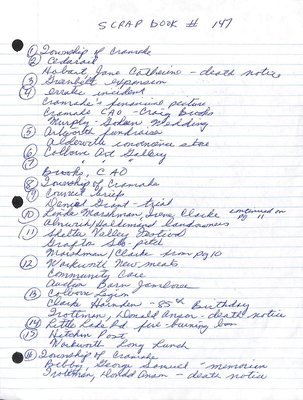 SCRAP book # 147
① Township of Cramahe
② Cedardail
Hobart, Jane Catherine - death notice
③ Greenbelt expansion
④ Drake incident
Cramahe's financial picture
Cramahe CAO - Craig Brooks
Murphy - Godden Wedding
⑤ Artworth fundraiser
Alderville store
⑥ Colborne Art Gallery
⑦ "
Brooks, CAO
⑧ Township of Cramahe
⑨ Council briefs
Daniel Grant - trial
⑩ Linda Marshman, Irene Clarke continued on pg 11
Alnwick/Haldimand landowners
⑪ Shelter Valley Festival
Grafton Slo-pitch
Marshman / Clarke from pg 10
⑫ Warkworth New meats
Community Care
Barn Jamboree
⑬ Colborne Legion
Clark Harnden - 85th Birthday
Trottman, Donald Anson - death notice
⑭ Little Lake Rd fire-burning barn
⑮ Hitchin Post
Warkworth Long Lunch
⑯ Township of Cramahe
Bibby, George Samuel - memoriam
Trottman, Donald Anson - death notice